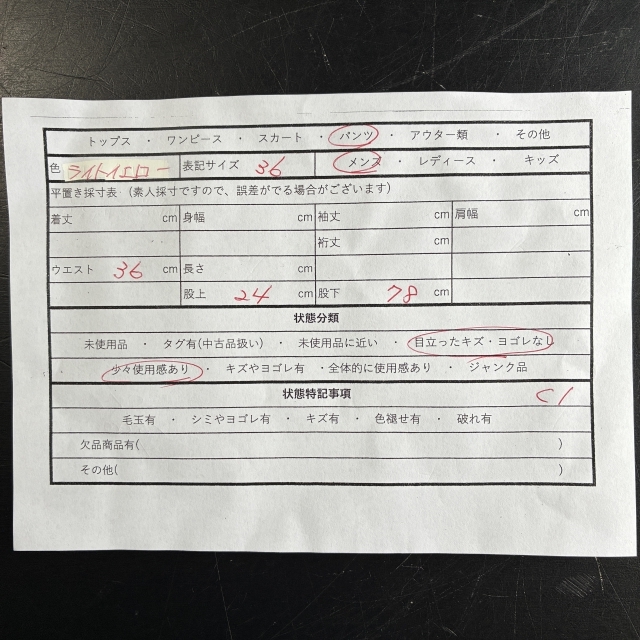 トップス ・ ワンピース ・ スカート ・ パンツ ・ アウター類 ・ その他
色 ライトイエロー 表記サイズ 36 メンズ ・ レディース ・ キッズ
平置き採寸表 (素人採寸ですので、誤差がでる場合がございます)
着丈 cm 身幅 cm 袖丈 cm 肩幅 cm
裄丈 cm
ウエスト 36 cm 長さ cm
股上 24 cm 股下 78 cm
状態分類
未使用品 ・ タグ有(中古品扱い) ・ 未使用品に近い ・ 目立ったキズ・ヨゴレなし
少々使用感あり ・ キズやヨゴレ有 ・全体的に使用感あり ・ ジャンク品
状態特記事項 C1
毛玉有 ・ シミやヨゴレ有 ・ キズ有 ・ 色褪せ有 ・ 破れ有
欠品商品有( )
その他( )